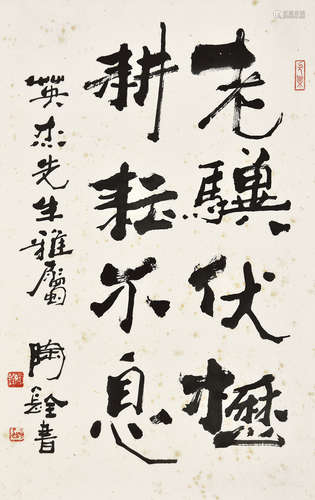 老驥伏櫪
耕耘不息
英杰先生雅屬
陶書